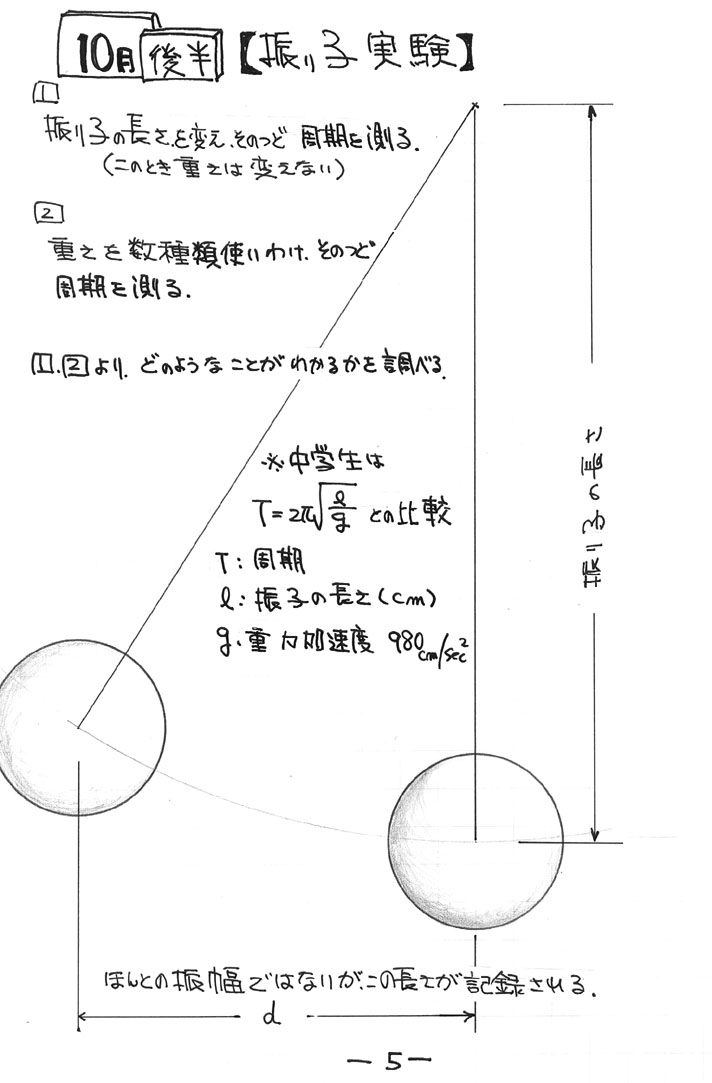 10月 後半 【振り子実験】
1
振り子の長さを変え、そのつど 周期を測る.
(このとき重さは変えない)
2
重さを数種類使いわけ、そのつど
周期を測る.
1.2より、どのようなことがわかるかを調べる.
※中学生は
T=2π√l/g との比較
T: 周期
l: 振子の長さ(cm)
g. 重力加速度 980cm/sec²
振り子の長さ
ほんとの振幅ではないが、この長さが記録される.
d
—5—